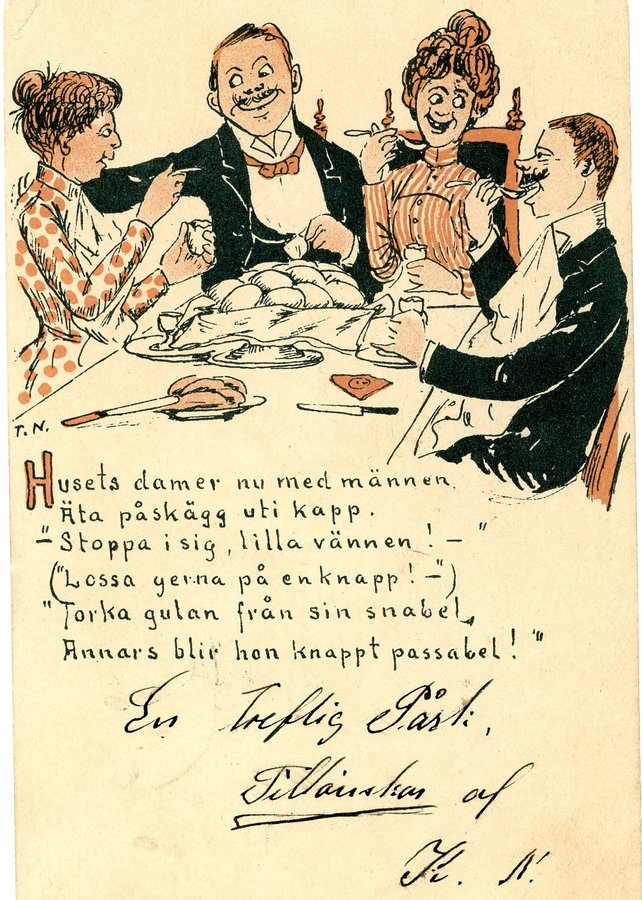 T. N.
Husets damer nu med männen,
Äta påskägg uti kapp.
"– Stoppa i sig, lilla vännen! –"
("Lossa gerna på en knapp! –")
"Torka gulan från sin snabel,
Annars blir hon knappt passabel!"
En treflig Påsk,
Tillönskas af
K. N.